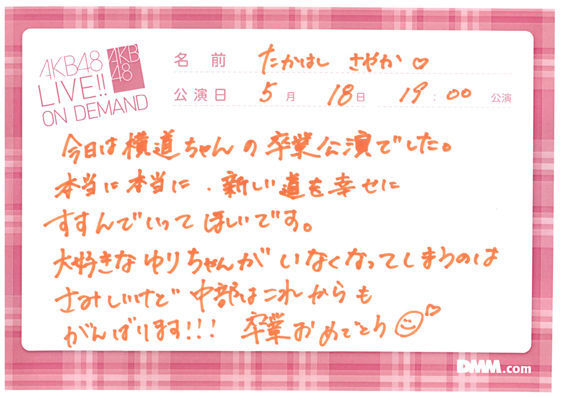 AKB48
LIVE!!
ON DEMAND
AKB
48
名前 たかはし さやか♡
公演日 5月 18日 19:00 公演
今日は横道ちゃんの卒業公演でした。
本当に本当に、新しい道を幸せに
すすんでいってほしいです。
大好きなゆりちゃんがいなくなってしまうのは
さみしいけど中部はこれからも
がんばります!!! 卒業おめでとう
DMM.com